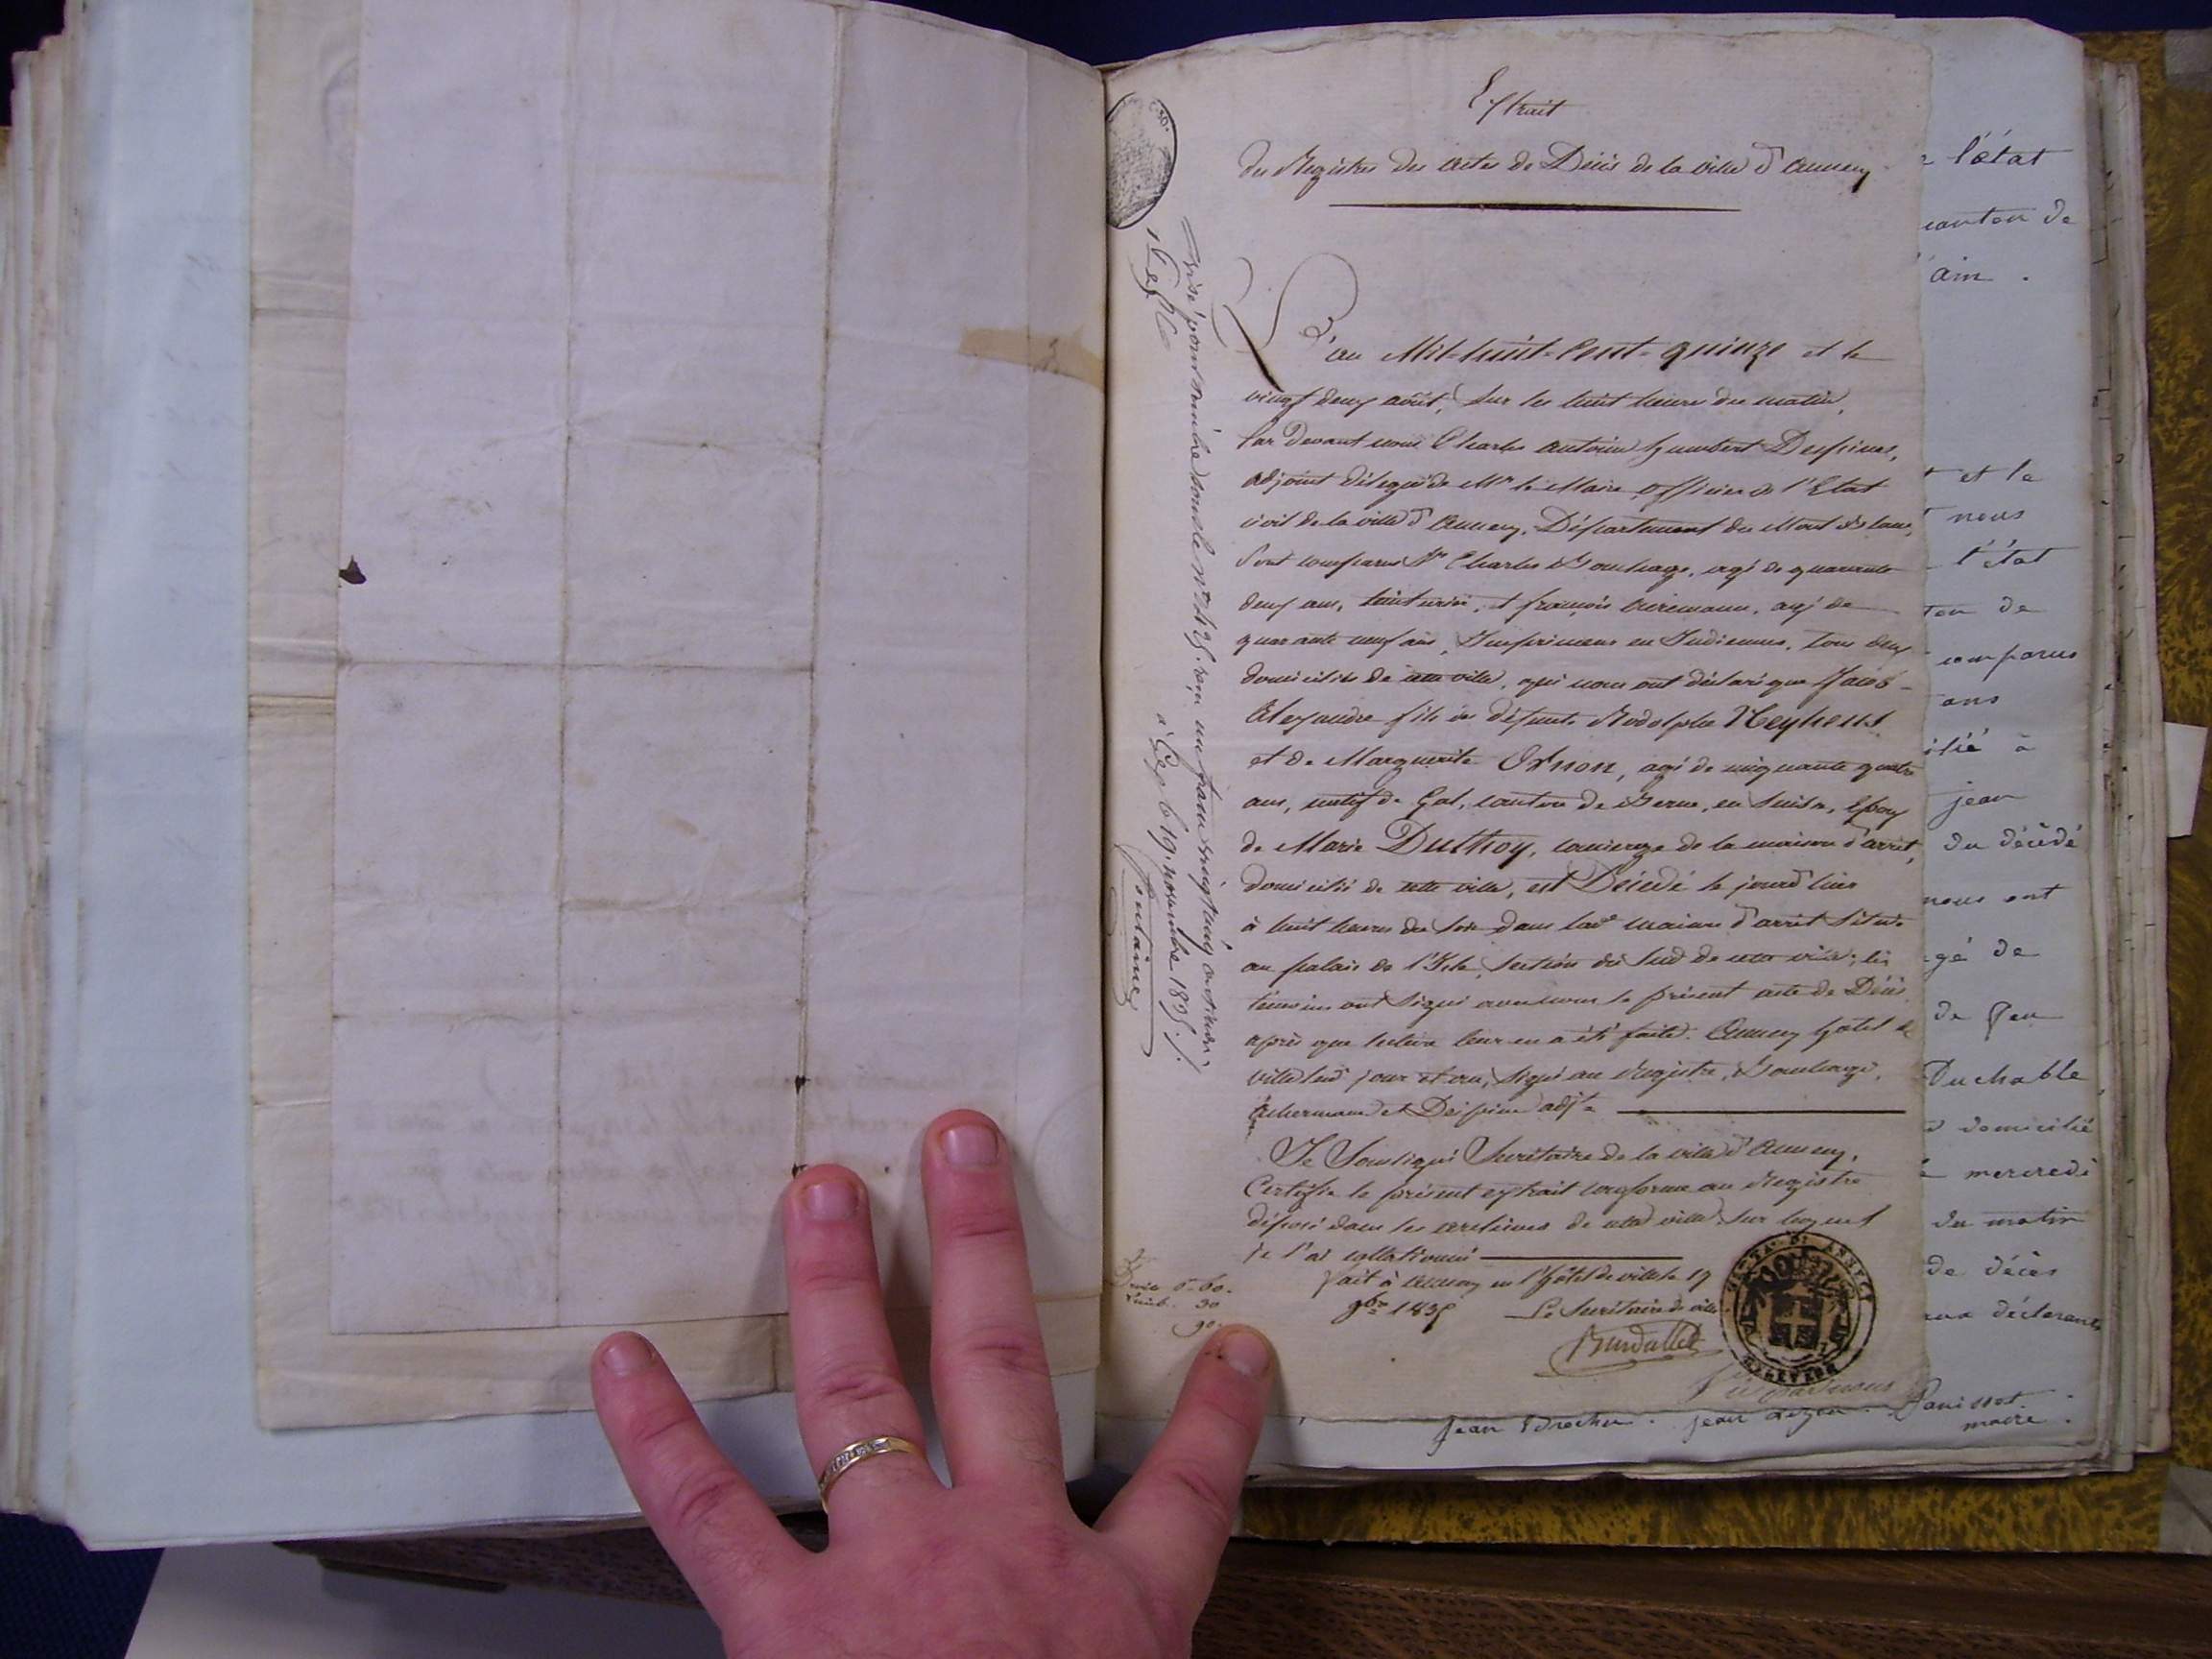 Extrait
des Registres des actes de Décès de la ville d'annecy
L'an Mil-huit-Cent-quinze et le
vingt deux août, sur les huit heures du matin,
par devant nous Charles antoine humbert Despines,
adjoint délégué de Mr le Maire, officier de l'Etat
civil de la ville d'annecy, Département du Mont Blanc,
sont comparus Sr Charles Bouchage, agé de quarante
deux ans, teinturier, et françois akermann, agé de
quarante neuf ans, Imprimeur en Indiennes, tous deux
domiciliés de cette ville, qui nous ont déclaré que Jacob
Alexandre fils des défunts Rodolphe Neyhous
et de Marguerite Oxhon, agé de cinquante quatre
ans, natif de Gal, canton de Berne, en Suisse, Epoux
de Marie Duthoy, concierge de la maison d'arrêt,
domicilié de cette ville, est Décédé le jourd'hier
à huit heures du soir dans lade maison d'arrêt située
au palais de l'Isle, section du sud de cette ville; les
témoins ont signé avec nous le présent acte de Décès
après que lecture leur en a été faite. Annecy hôtel de
ville led jour et an, signé au Registre, Bouchage,
akermann et Despine adjt
Je soussigné Secrétaire de la ville d'annecy,
Certifie le présent extrait conforme au Registre
déposé dans les archives de cette ville, sur lequel
je l'ai collationné
fait à annecy en l'hôtel de ville le 19
9bre 1835 Le Secrétaire de ville
Burdallet
visé pour timbre sous le no 425. reçu un franc vingt cinq centimes
à Gex le 19. novembre 1835.
fontaine
Droits 0-60.
timb. 30
90.
VILLE D'ANNECY
l'état
canton de
ain.
et le
nous
l'état
ton de
comparus
ans
cilié à
jean
du décédé
nous ont
gé de
de feu
Duchable
domicilié
mercredi
du matin
de décès
aux déclarants
jean Brochu. jean
Panissot
maire.